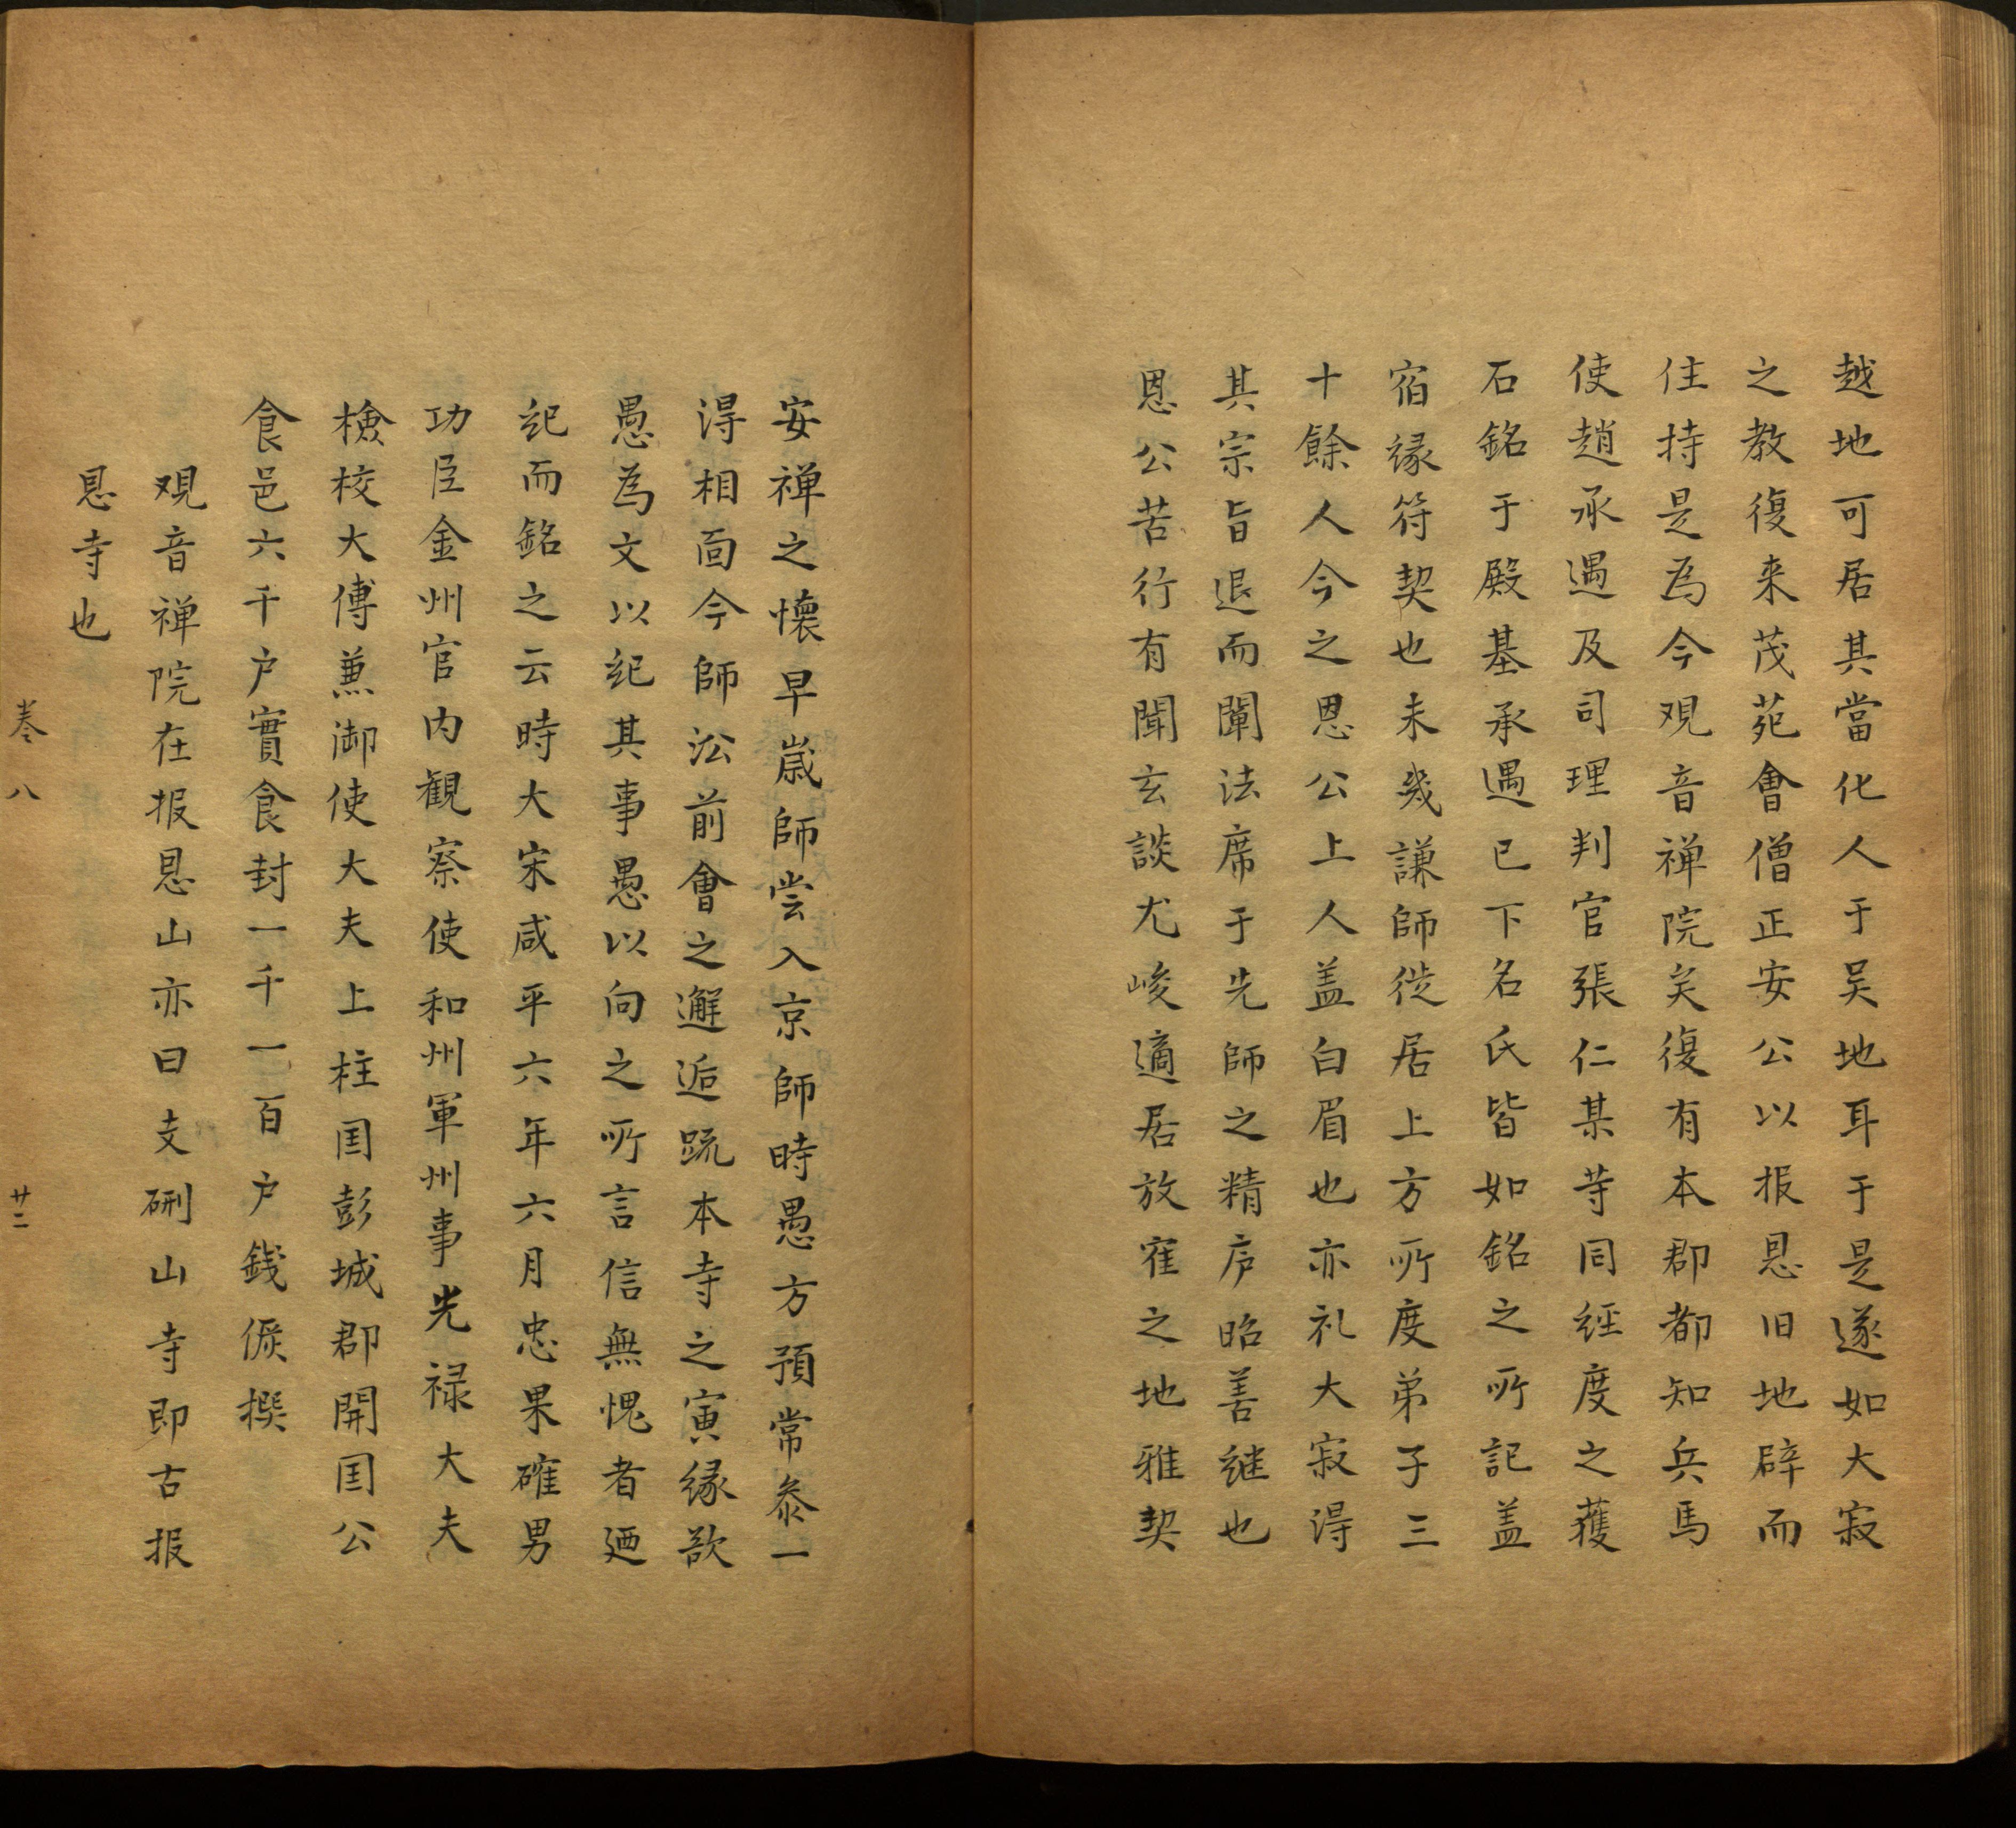 越地可居其當化人于吴地耳于是遂如大寂
之教復来茂苑會僧正安公以报恩旧地辟而
住持是為今观音禅院矣復有本郡都知兵馬
使趙承遇及司理判官張仁某等同經度之獲
石銘于殿基承遇已下名氏皆如銘之所記盖
宿縁符契也未幾謙師徙居上方所度弟子三
十餘人今之恩公上人盖白眉也亦礼大寂得
其宗旨退而闡法席于先師之精庐昭善継也
恩公苦行有聞玄談尤峻適居放寉之地雅契
安禅之懐早歳師尝入京師時愚方預常叅一
得相面今師㳂前會之邂逅䟽本寺之寅縁欲
愚為文以紀其事愚以向之所言信無愧者廼
紀而銘之云時大宋咸平六年六月忠果確男
功臣金州官内観察使和州軍州事光禄大夫
檢校大傅兼御使大夫上柱国彭城郡開国公
食邑六千户實食封一千一百户錢儼撰
观音禅院在报恩山亦曰支硎山寺即古报
恩寺也
卷八
廿二